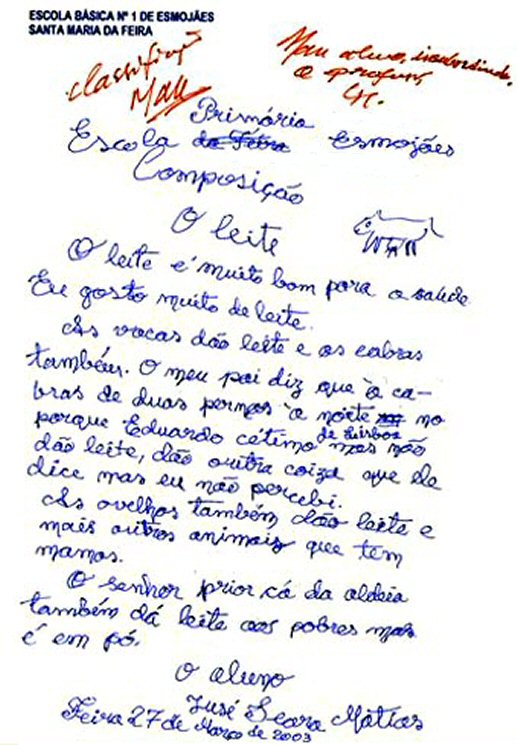 ESCOLA BÁSICA Nº 1 DE ESMOJÃES
SANTA MARIA DA FEIRA
Mau aluno,
o
Mau
Primária
Escola da Feira Esmojães
Composição
O leite
O leite é muito bom para a saúde
Eu gosto muito de leite.
As vacas dão leite e as cabras
também. O meu pai diz que à ca-
bras de duas pernas à noite no
porque Eduardo cétimo de Lisboa mas não
dão leite, dão outra coiza que ele
dice mas eu não percebi.
As ovelhas também dão leite e
mais outros animais que tem
mamas.
O senhor prior cá da aldeia
também dá leite aos pobres mas
é em pó.
O aluno
José Seara Matias
Feira 27 de Março de 2003